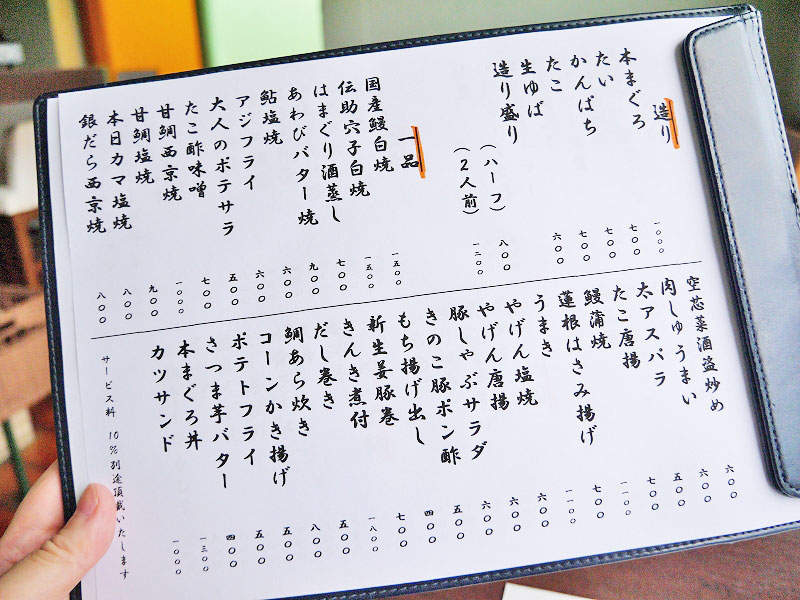 造り
本まぐろ 一〇〇〇
たい 七〇〇
かんぱち 七〇〇
たこ 七〇〇
生ゆば 六〇〇
造り盛り (ハーフ) 八〇〇
(2人前) 一二〇〇
一品
国産鰻白焼 一五〇〇
伝助穴子白焼 一五〇〇
はまぐり酒蒸し 七〇〇
あわびバター焼 九〇〇
鮎塩焼 六〇〇
アジフライ 六〇〇
大人のポテサラ 五〇〇
たこ酢味噌 七〇〇
甘鯛西京焼 一〇〇〇
甘鯛塩焼 九〇〇
本日カマ塩焼 八〇〇
銀だら西京焼 八〇〇
空芯菜酒盗炒め 六〇〇
肉しゅうまい 六〇〇
太アスパラ 五〇〇
たこ唐揚 七〇〇
鰻蒲焼 一一〇〇
蓮根はさみ揚げ 七〇〇
うまき 一一〇〇
やげん塩焼 六〇〇
やげん唐揚 六〇〇
豚しゃぶサラダ 六〇〇
きのこ豚ポン酢 五〇〇
もち揚げ出し 四〇〇
新生姜豚巻 七〇〇
きんき煮付 一八〇〇
だし巻き 五〇〇
鯛あら炊き 八〇〇
コーンかき揚げ 五〇〇
ポテトフライ 五〇〇
さつま芋バター 四〇〇
本まぐろ丼 一三〇〇
カツサンド 一〇〇〇
サービス料 10%別途頂戴いたします